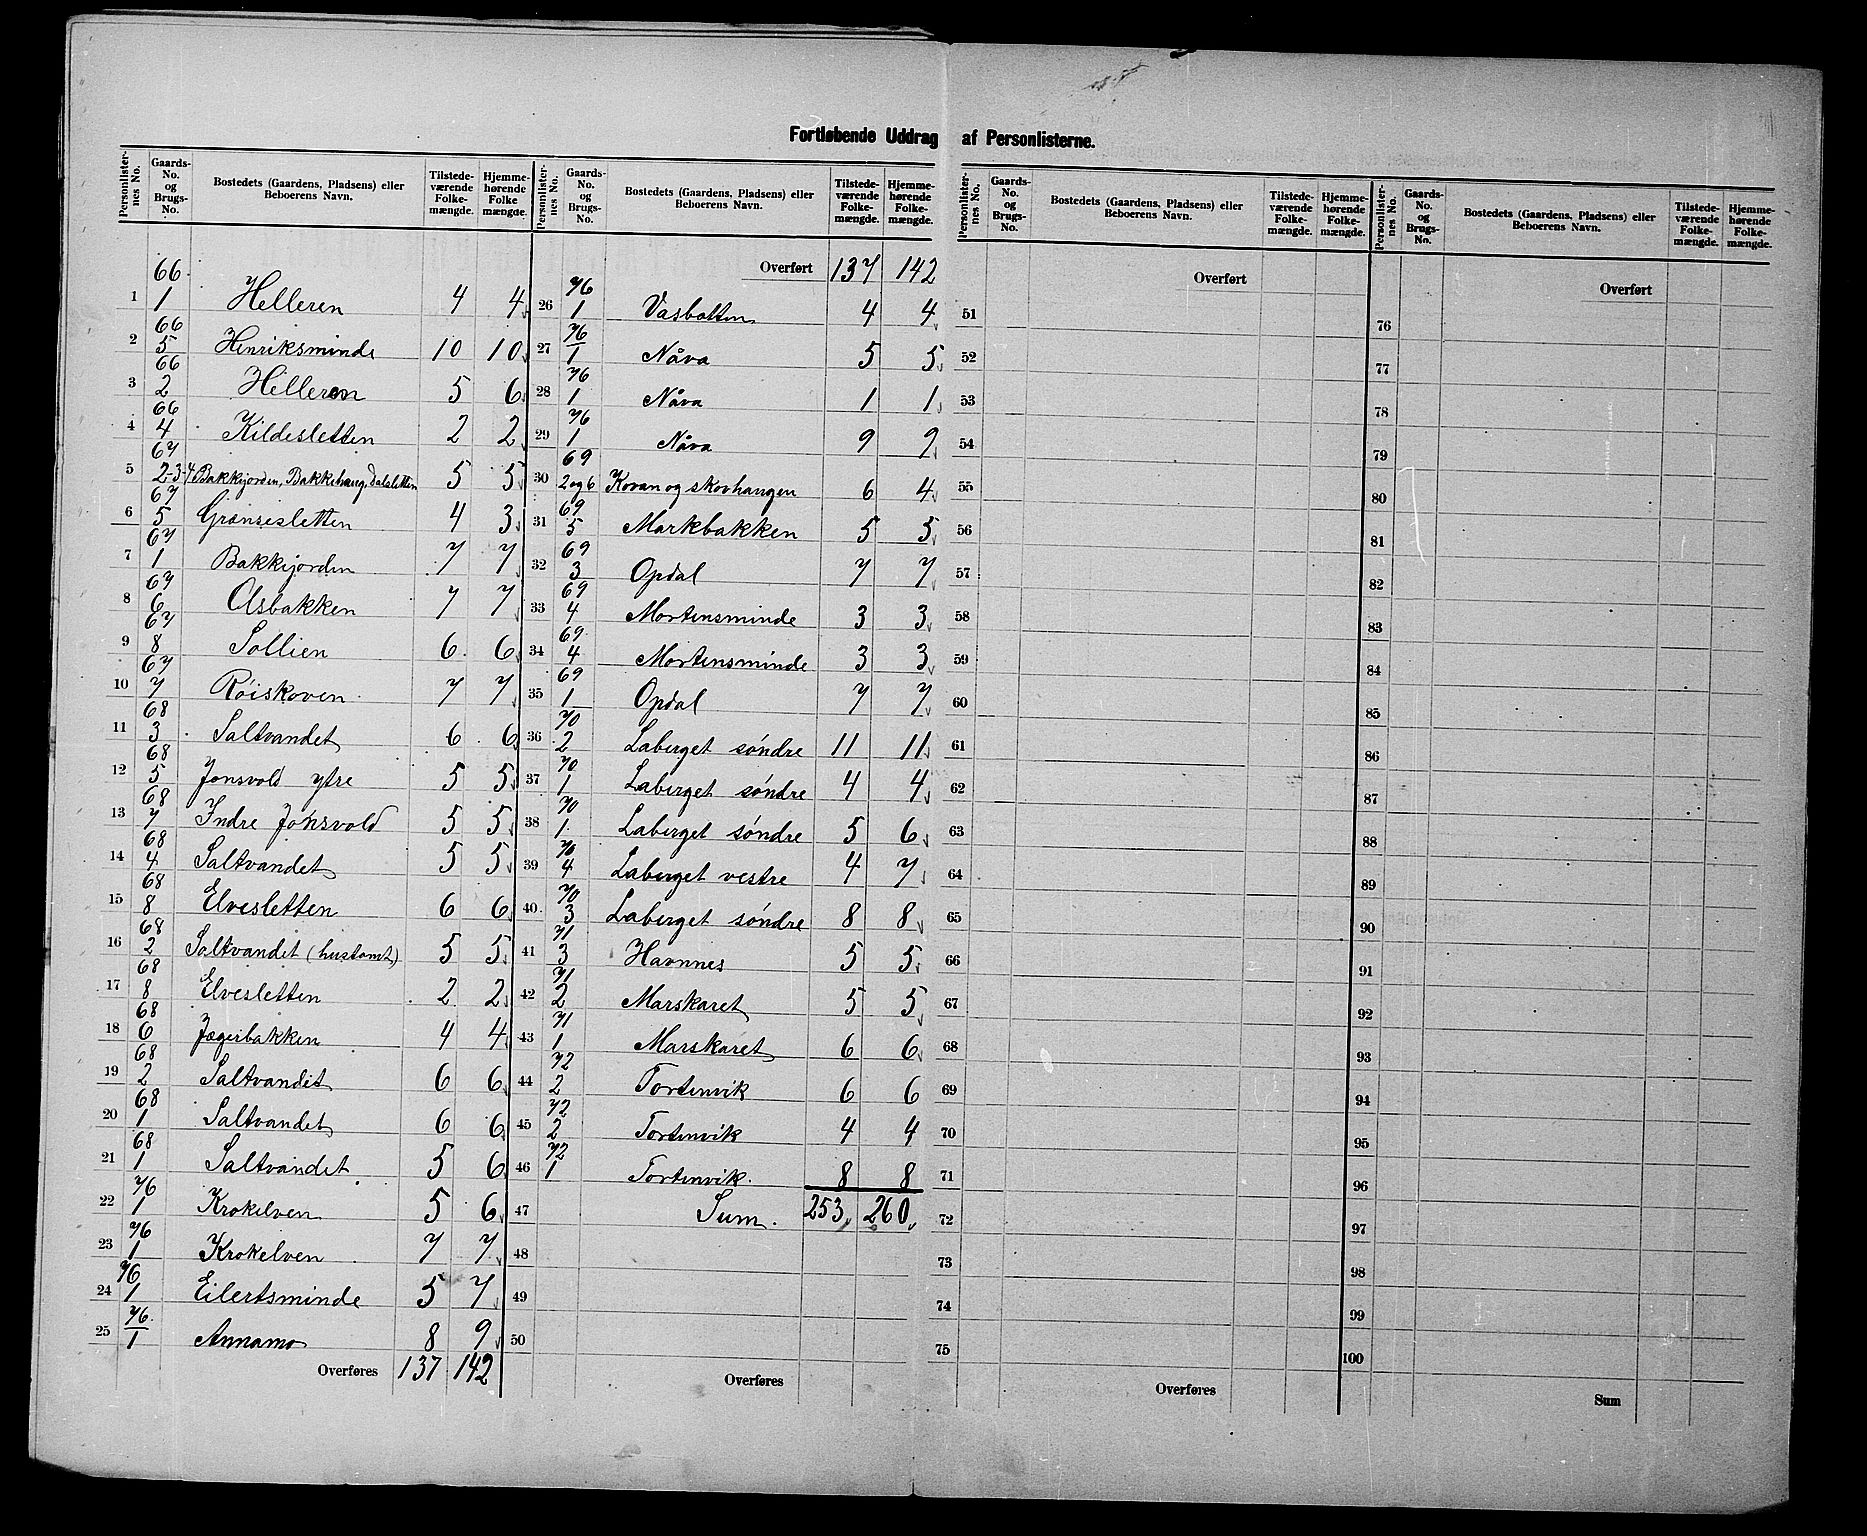 Fortløbende Uddrag af Personlisterne.
Personlisternes No. | Gaards-No. og Brugs-No. | Bostedets (Gaardens, Pladsens) eller Beboerens Navn. | Tilstedeværende Folkemængde. | Hjemmehørende Folkemængde.
1 | 66 1 | Helleren | 4 | 4
2 | 66 5 | Henriksminde | 10 | 10
3 | 66 2 | Hilleren | 5 | 6
4 | 66 4 | Kildesletten | 2 | 2
5 | 67 2-3-4 | Bakkejorden, Bakkehaug, Dalsletten | 5 | 5
6 | 67 5 | Grænsesletten | 4 | 3
7 | 67 1 | Bakkejorden | 7 | 7
8 | 67 6 | Olsbakken | 7 | 7
9 | 67 8 | Sollien | 6 | 6
10 | 67 7 | Røiskoven | 7 | 7
11 | 68 3 | Saltvandet | 6 | 6
12 | 68 5 | Jonsvold ytre | 5 | 5
13 | 68 7 | Indre Jonsvold | 5 | 5
14 | 68 4 | Saltvandet | 5 | 5
15 | 68 8 | Elvesletten | 6 | 6
16 | 68 2 | Saltvandet (hustomt) | 5 | 5
17 | 68 8 | Elvesletten | 2 | 2
18 | 68 6 | Jægerbakken | 4 | 4
19 | 68 2 | Saltvandet | 6 | 6
20 | 68 1 | Saltvandet | 6 | 6
21 | 68 1 | Saltvandet | 5 | 6
22 | 76 1 | Krokelven | 5 | 6
23 | 76 1 | Krokelven | 7 | 7
24 | 76 1 | Eilertsminde | 5 | 7
25 | 76 1 | Annamo | 8 | 9
Overføres | 137 | 142
Personlisternes No. | Gaards-No. og Brugs-No. | Bostedets (Gaardens, Pladsens) eller Beboerens Navn. | Tilstedeværende Folkemængde. | Hjemmehørende Folkemængde.
Overført | 137 | 142
26 | 76 1 | Vasbotten | 4 | 4
27 | 76 1 | Nåva | 5 | 5
28 | 76 1 | Nåva | 1 | 1
29 | 76 1 | Nåva | 9 | 9
30 | 69 2 og 6 | Kovan og skovhangen | 6 | 4
31 | 69 5 | Markbakken | 5 | 5
32 | 69 3 | Opdal | 7 | 7
33 | 69 4 | Mortensminde | 3 | 3
34 | 69 4 | Mortensminde | 3 | 3
35 | 69 1 | Opdal | 7 | 7
36 | 70 2 | Laberget søndre | 11 | 11
37 | 70 1 | Laberget søndre | 4 | 4
38 | 70 1 | Laberget søndre | 5 | 6
39 | 70 4 | Laberget vestre | 4 | 7
40 | 70 3 | Laberget søndre | 8 | 8
41 | 71 3 | Havnnes | 5 | 5
42 | 71 2 | Marskaret | 5 | 5
43 | 71 1 | Marskaret | 6 | 6
44 | 72 2 | Tortenvik | 6 | 6
45 | 72 2 | Tortenvik | 4 | 4
46 | 72 1 | Tortenvik | 8 | 8
47 | Sum. | 253 | 260
48
49
50
Overføres
Personlisternes No. | Gaards-No. og Brugs-No. | Bostedets (Gaardens, Pladsens) eller Beboerens Navn. | Tilstedeværende Folkemængde. | Hjemmehørende Folkemængde.
Overført
51
52
53
54
55
56
57
58
59
60
61
62
63
64
65
66
67
68
69
70
71
72
73
74
75
Overføres
Personlisternes No. | Gaards-No. og Brugs-No. | Bostedets (Gaardens, Pladsens) eller Beboerens Navn. | Tilstedeværende Folkemængde. | Hjemmehørende Folkemængde.
Overført
76
77
78
79
80
81
82
83
84
85
86
87
88
89
90
91
92
93
94
95
96
97
98
99
100
Sum